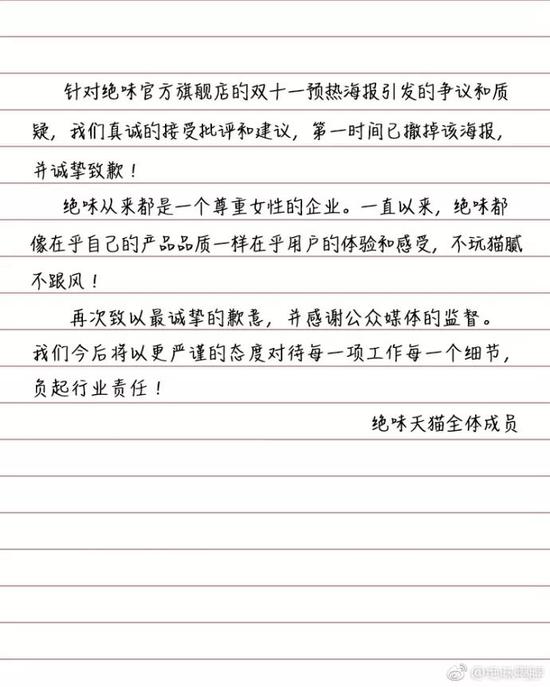 针对绝味官方旗舰店的双十一预热海报引发的争议和质
疑，我们真诚的接受批评和建议，第一时间已撤掉该海报，
并诚挚致歉！
绝味从来都是一个尊重女性的企业。一直以来，绝味都
像在乎自己的产品品质一样在乎用户的体验和感受，不玩猫腻
不跟风！
再次致以最诚挚的歉意，并感谢公众媒体的监督。
我们今后将以更严谨的态度对待每一项工作每一个细节，
负起行业责任！
绝味天猫全体成员